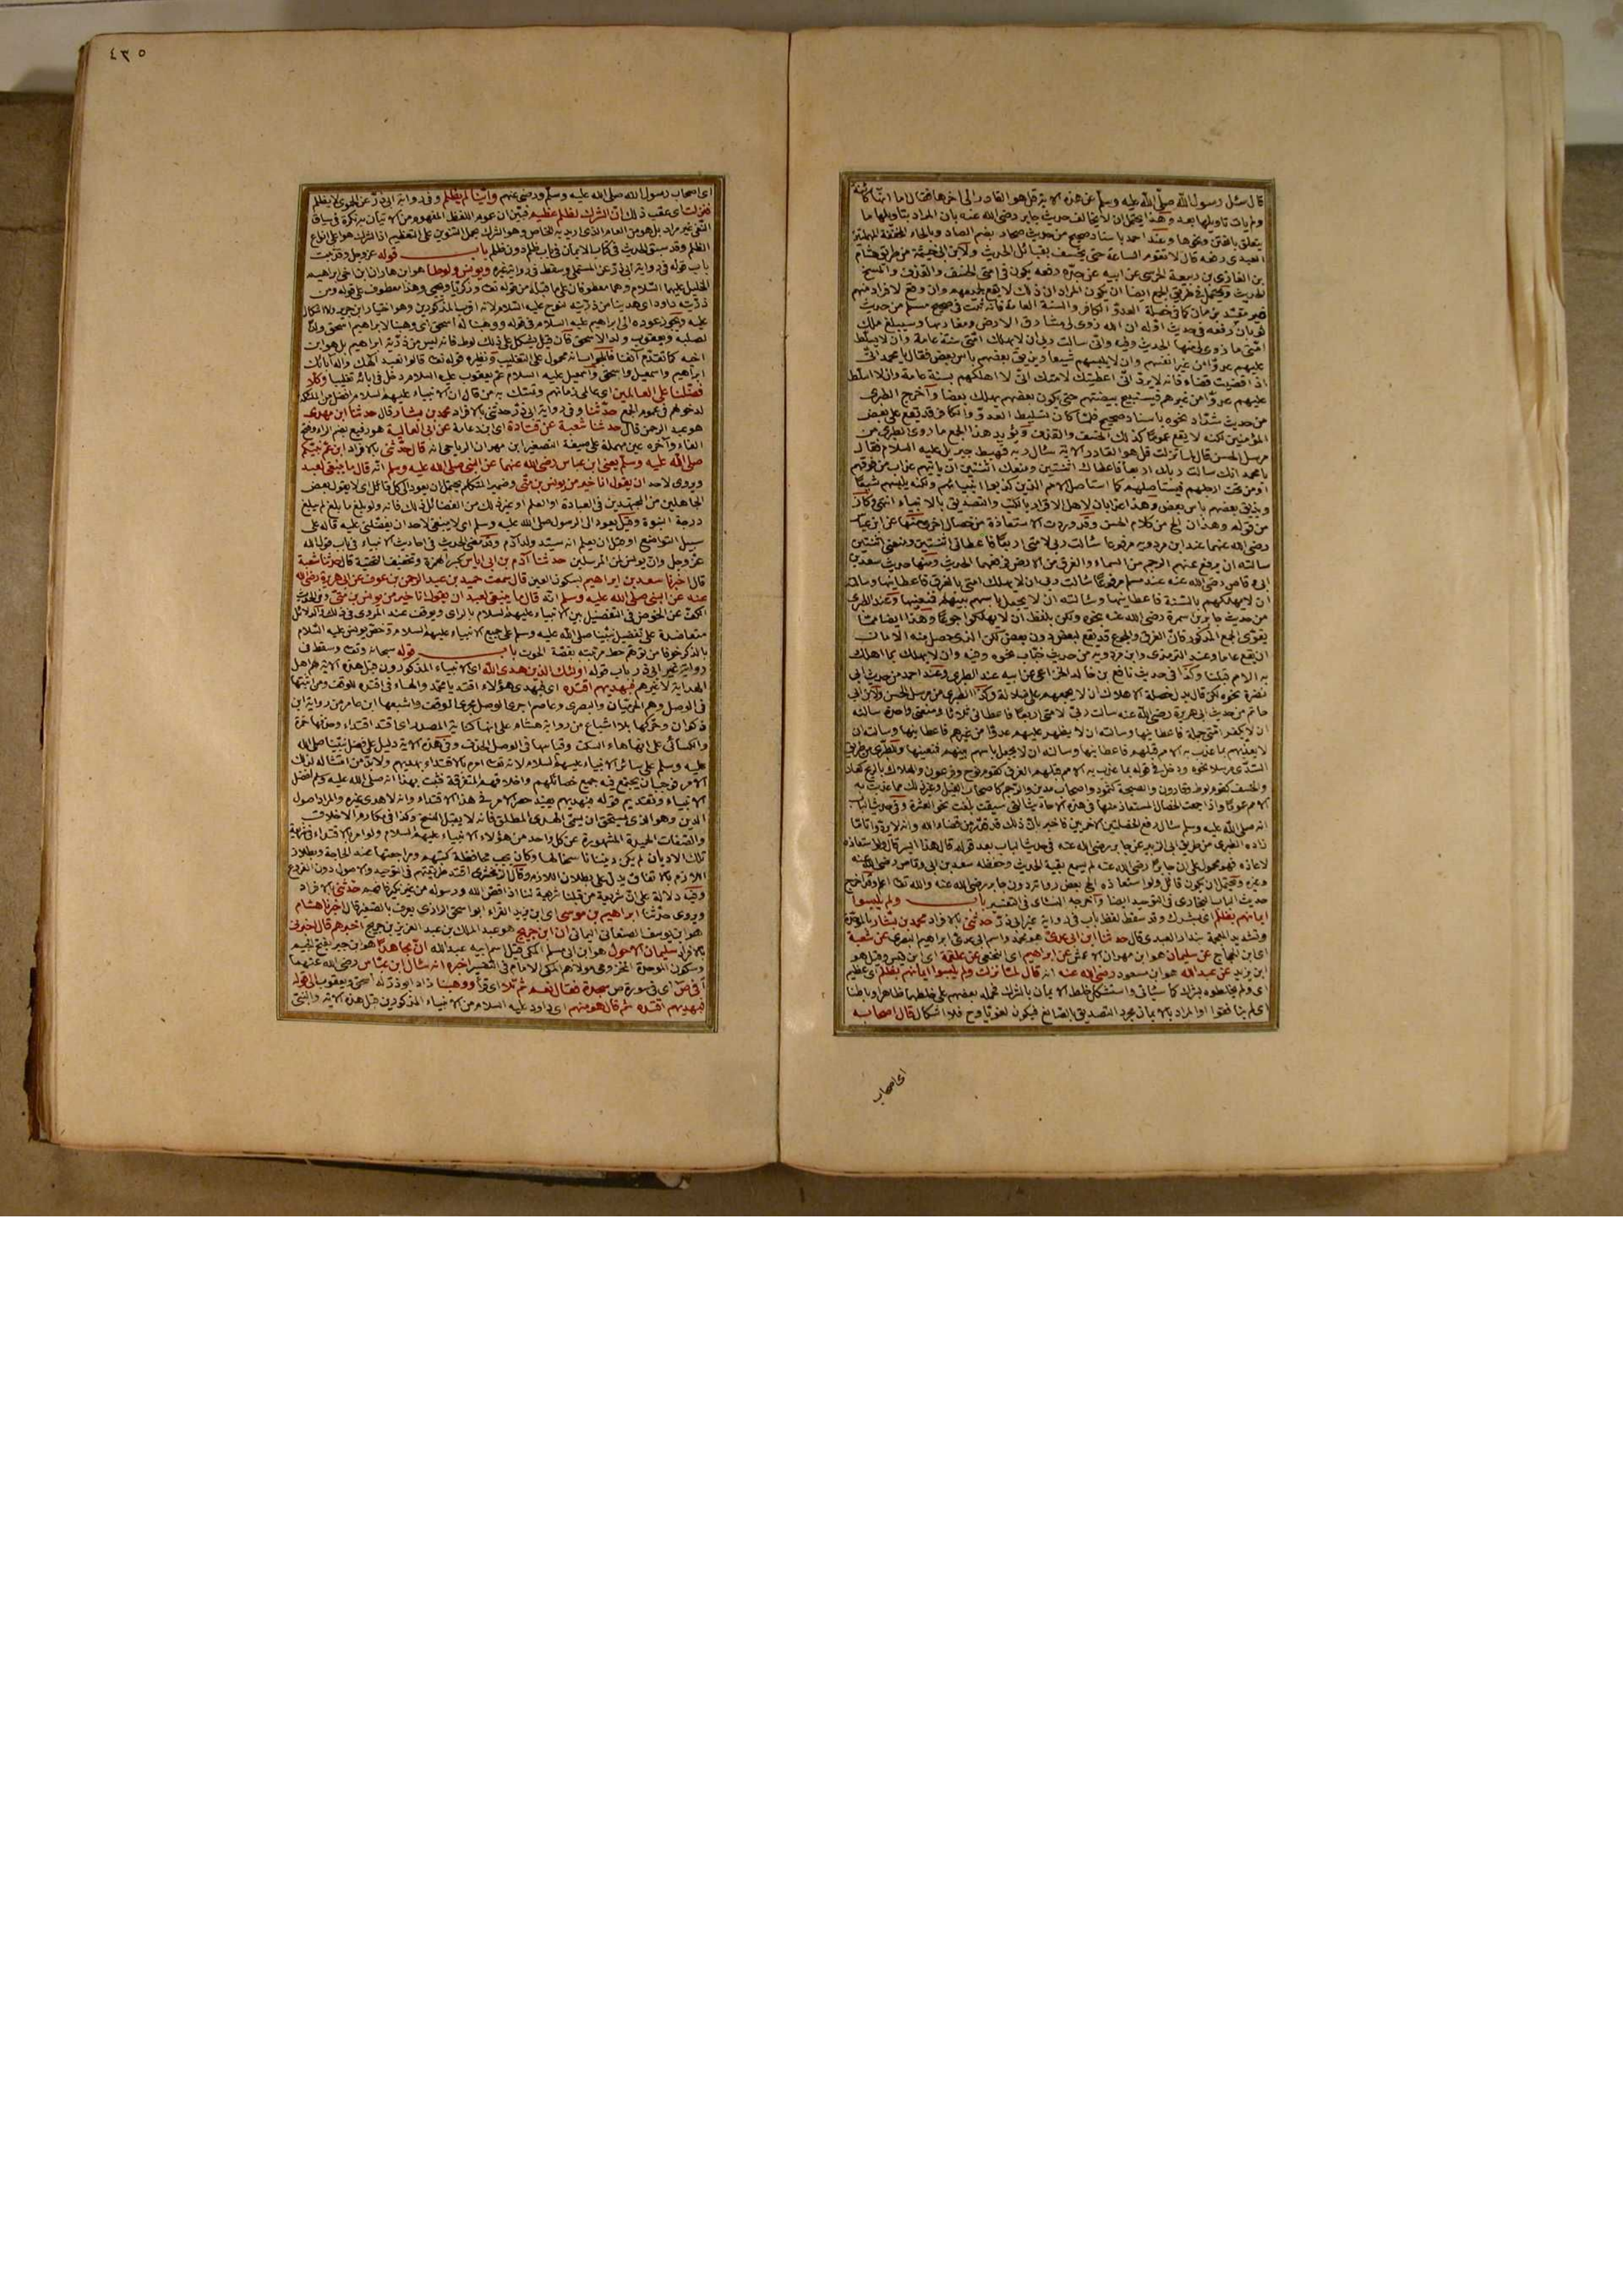 قال سئل رسول الله صلى الله عليه وسلم عن هذه الآية قل هو القادر الى اخرها فقال اما انها كائنة
ولم يات تاويلها بعد وهذا يحتمل ان لا يخالف حديث جابر رضى الله عنه بان المراد بتاويلها ما
يتعلق بالفتن ونحوها وعند احمد باسناد صحيح من حديث صحار بضم الصاد وبالحاء المخففة المهملتين
العبدى رفعه قال لا تقوم الساعة حتى يخسف بقبائل الحديث
لذكر الحديث
ثوبان رفعه فى حديث اوله ان الله زوى لى مشارق الارض ومغاربها وسيبلغ ملك
امتى ما زوى لى منها الحديث وفيه وانى سالت ربى ان لا يهلك امتى بسنة عامة وان لا يسلط
عليهم عدوا من غير انفسهم وان لا يلبسهم شيعا ويذيق بعضهم باس بعض فقال يا محمد انى
اذا قضيت قضاء فانه لا يرد وانى اعطيتك لامتك انى لا اهلكهم بسنة عامة وان لا اسلط
عليهم عدوا من غيرهم فيستبيح بيضتهم حتى يكون بعضهم يهلك بعضا واخرج الطبرى
من حديث شداد نحوه باسناد صحيح فلما كان تسليط العدو الكافر قد يقع على بعض
المؤمنين لكنه لا يقع عموما كذلك الخسف والقذف ويؤيد هذا الجمع ما روى الطبرى من
مرسل الحسن قال لما نزلت قل هو القادر الآية سال ربه فهبط جبريل عليه السلام فقال
يا محمد انك سالت ربك اربعا فاعطاك اثنتين ومنعك اثنتين ان ياتيهم عذاب من فوقهم
او من تحت ارجلهم فيستاصلهم كما استاصل الامم الذين كذبوا انبياءهم ولكنه يلبسهم شيعا
ويذيق بعضهم باس بعض وهذان عذابان لاهل الاقرار بالكتب والتصديق بالانبياء انتهى وكان
من قوله وهذان الخ من كلام الحسن وقد وردت الاستعاذة من خصال اخرى منها عن ابن عباس
رضى الله عنهما عند ابن مردويه مرفوعا سالت ربى لامتى اربعا فاعطانى اثنتين ومنعنى اثنتين
سالته ان يرفع عنهم الرجم من السماء والغرق من الارض فرفعهما الحديث ومنها حديث سعد بن
ابى وقاص رضى الله عنه عند مسلم مرفوعا سالت ربى ان لا يهلك امتى بالغرق فاعطانيها وسالته
ان لا يهلكهم بالسنة فاعطانيها وسالته ان لا يجعل باسهم بينهم فمنعنيها وعند الطبرى
من حديث جابر بن سمرة رضى الله عنه نحوه ولكن بلفظ ان لا يهلكوا جوعا وهذا ايضا مما
يقوى الجمع المذكور فان الغرق والجوع قد يقع لبعض دون بعض لكن الذى حصل منه الامان
ان يقع عاما وعند الترمذى وابن مردويه من حديث خباب نحوه وفيه وان لا يهلك بما اهلك
به الامم قبلنا وكذا فى حديث نافع بن خالد الخزاعى عن ابيه عند الطبرى وعند احمد من حديث ابى
نضرة نحوه لكن قال بدل خصلة الاهلاك ان لا يجمعهم على ضلالة وكذا الطبرى من مرسل الحسن ولابن ابى
حاتم من حديث ابى هريرة رضى الله عنه سالت ربى لامتى اربعا فاعطانى ثلاثا ومنعنى واحدة سالته
ان لا يكفر امتى جملة فاعطانيها وسالته ان لا يظهر عليهم عدوا من غيرهم فاعطانيها وسالته ان
لا يعذبهم بما عذب به الامم قبلهم فاعطانيها وسالته ان لا يجعل باسهم بينهم فمنعنيها وللطبرى من طريق
السدى مرسلا نحوه ودخل فى قوله بما عذب به الامم قبلهم الغرق كقوم نوح وفرعون والهلاك بالريح كعاد
والخسف كقوم لوط وقارون والصيحة كثمود واصحاب مدين والرجم كاصحاب الفيل وغير ذلك مما عذبت به
الامم عموما واذا جمعت الخصال المستعاذ منها فى هذه الاحاديث التى سيقت بلغت نحو العشرة وفى حديث الباب
انه صلى الله عليه وسلم سال رفع الخصلتين الاخريين فاخبر بان ذلك قد قدر من قضاء الله وانه لا يرد واما ما
زاده الطبرى من طريق ابى الزبير عن جابر رضى الله عنه فى حديث الباب بعد قوله قال هذا ايسر قال ولو استعاذه
لاعاذه فهو محمول على ان جابرا رضى الله عنه لم يسمع بقية الحديث وحفظه سعد بن ابى وقاص رضى الله عنه
وغيره ويحتمل ان يكون قائل ولو استعاذه الخ بعض رواته دون جابر رضى الله عنه والله تعالى اعلم وقد اخرج
حديث الباب البخارى فى التوحيد ايضا واخرجه النسائى فى التفسير باب ولم يلبسوا
ايمانهم بظلم اى بشرك وقد سقط لفظ باب فى رواية غير ابى ذر حدثنى بالافراد محمد بن بشار بالموحدة
وتشديد المعجمة بندار العبدى قال حدثنا ابن ابى عدى هو محمد واسم ابى عدى ابراهيم البصرى عن شعبة
اى ابن الحجاج عن سليمان هو ابن مهران الاعمش عن ابراهيم اى النخعى عن علقمة اى ابن قيس وقيل هو
ابن يزيد عن عبد الله هو ابن مسعود رضى الله عنه انه قال لما نزلت ولم يلبسوا ايمانهم بظلم اى عظيم
اى ولم يخلطوه بشرك كما سياتى واستشكل خلط الايمان بالشرك فحمله بعضهم على خلطهما ظاهرا وباطنا
اى لم ينافقوا او المراد بالايمان مجرد التصديق بالصانع فيكون لغويا وح فلا اشكال قال اصحابه
اى اصحاب
٤٣٥
اى اصحاب رسول الله صلى الله عليه وسلم ورضى عنهم واينا لم يظلم وفى رواية ابى ذر عن الحموى لا يظلم
فنزلت اى عقب ذلك ان الشرك لظلم عظيم فبين ان عموم اللفظ المفهوم من الاتيان به نكرة فى سياق
النفى غير مراد بل هو من العام الذى اريد به الخاص وهو الشرك بحمل التنوين على التعظيم اذ الشرك هو اعلى انواع
الظلم وقد سبق الحديث فى كتاب الايمان فى باب ظلم دون ظلم باب قوله عز وجل
باب قوله فى رواية ابى ذر عن المستملى وسقط فى رواية غيره ويونس ولوطا هو ابن هاران ابن اخى ابراهيم
الخليل عليهما السلام وهما معطوفان على ما قبله من قوله تعالى وزكريا ويحيى وهذا معطوف على قوله ومن
ذريته داود اى هدينا من ذريته نوح عليه السلام لانه اقرب المذكورين وهو اختيار ابن جرير ولا اشكال
عليه ويجوز عوده الى ابراهيم عليه السلام فى قوله ووهبنا له اسحق اى وهبنا لابراهيم اسحق ولدا
لصلبه ويعقوب ولد الاسحق فان قيل يشكل على ذلك لوط فانه ليس من ذرية ابراهيم بل هو ابن
اخيه كما تقدم آنفا فالجواب انه محمول على التغليب ونظيره قوله تعالى قالوا نعبد الهك واله آبائك
ابراهيم واسمعيل واسحق واسمعيل عليه السلام عم يعقوب عليه السلام دخل فى آبائه تغليبا وكلا
فضلنا على العالمين اى عالمى زمانهم وتمسك به من قال ان الانبياء عليهم السلام افضل من الملائكة
لدخولهم فى عموم الجمع حدثنا وفى رواية ابى ذر حدثنى بالافراد محمد بن بشار قال حدثنا ابن مهدى
هو عبد الرحمن قال حدثنا شعبة عن قتادة اى ابن دعامة عن ابى العالية هو رفيع بضم الراء وفتح
الفاء وآخره عين مهملة على صيغة التصغير ابن مهران الرياحى انه قال حدثنى بالافراد ابن عم نبيكم
صلى الله عليه وسلم يعنى ابن عباس رضى الله عنهما عن النبى صلى الله عليه وسلم انه قال ما ينبغى لعبد
ويروى لاحد ان يقول انا خير من يونس بن متى وضمير المتكلم يحتمل ان يعود الى كل قائل اى لا يقول بعض
الجاهلين من المجتهدين فى العبادة او العلم او غير ذلك من الفضائل ذلك فانه ولو بلغ ما بلغ لم يبلغ
درجة النبوة وقيل يعود الى الرسول صلى الله عليه وسلم اى لا ينبغى لاحد ان يفضلنى عليه قاله على
سبيل التواضع او قبل ان يعلم انه سيد ولد آدم وقد مضى الحديث فى احاديث الانبياء فى باب قول الله
عز وجل وان يونس لمن المرسلين حدثنا آدم بن ابى اياس بكسر الهمزة وتخفيف التحتية قال حدثنا شعبة
قال اخبرنا سعد بن ابراهيم بسكون العين قال سمعت حميد بن عبد الرحمن بن عوف عن ابى هريرة رضى الله
عنه عن النبى صلى الله عليه وسلم انه قال ما ينبغى لعبد ان يقول انا خير من يونس بن متى وفى الحديث
الكف عن الخوض فى التفضيل بين الانبياء عليهم السلام بالراى ويوقف عند المروى فى ذلك والدلائل
متعاضدة على تفضيل نبينا صلى الله عليه وسلم على جميع الانبياء عليهم السلام وخص يونس عليه السلام
بالذكر خوفا من توهم حط مرتبته بقصة الحوت باب قوله سبحانه وتعالى وسقط فى
رواية غير ابى ذر باب قوله اولئك الذين هدى الله اى الانبياء المذكورون قبل هذه الآية هم اهل
الهداية لا غيرهم فبهديهم اقتده اى فبهدى هؤلاء اقتد يا محمد والهاء فى اقتده للوقف ومن اثبتها
فى الوصل وهم الحرميان والبصرى وعاصم اجرى الوصل مجرى الوقف واشبعها ابن عامر من رواية ابن
ذكوان وحركها بلا اشباع من رواية هشام على انها كناية المصدر اى اقتد اقتداء وحذفها حمزة
والكسائى على انها هاء السكت وقياسها فى الوصل الحذف وفى هذه الآية دليل على فضل نبينا صلى الله
عليه وسلم على سائر الانبياء عليهم السلام لانه تعالى امره بالاقتداء بهديهم ولابد من امتثاله لذلك
الامر فوجب ان يجتمع فيه جميع خصائلهم واخلاقهم المتفرقة فثبت بهذا انه صلى الله عليه وسلم افضل
الانبياء وتقديم قوله فبهديهم يفيد حصر الامر فى هذا الاقتداء وانه لا هدى غيره والمراد اصول
الدين وهو الذى يستحق ان يسمى الهدى المطلق فانه لا يقبل النسخ وكذا فى مكارم الاخلاق
والصفات الحميدة المشهورة عن كل واحد من هؤلاء الانبياء عليهم السلام ولو امر بالاقتداء فى
تلك الاديان لم يكن ديننا ناسخا لها وكان يجب محافظة كتبهم ومراجعتها عند الحاجة وبطلان
اللازم بالاتفاق يدل على بطلان الملزوم وقال الزمخشرى اقتد طريقتهم فى التوحيد والاصول دون الفروع
وفيه دلالة على ان شريعة من قبلنا شريعة لنا اذا قص الله ورسوله من غير نكير حدثنى بالافراد
ويروى حدثنا ابراهيم بن موسى اى ابن يزيد الفراء ابو اسحق الرازى يعرف بالصغير قال اخبرنا هشام
هو ابن يوسف الصنعانى اليمانى ان ابن جريج هو عبد الملك بن عبد العزيز بن جريج اخبرهم قال اخبرنى
بالافراد سليمان الاحول هو ابن ابى مسلم المكى قيل اسم ابيه عبد الله ان مجاهدا هو ابن جبر بفتح الجيم
وسكون الموحدة المخزومى مولاهم المكى الامام فى التفسير اخبره انه سال ابن عباس رضى الله عنهما
أفى ص اى فى سورة ص سجدة فقال نعم ثم تلا اى قرأ ووهبنا زاد ابو ذر له اسحق ويعقوب الى قوله
فبهديهم اقتده ثم قال هو منهم اى داود عليه السلام من الانبياء المذكورين قبل هذه الآية